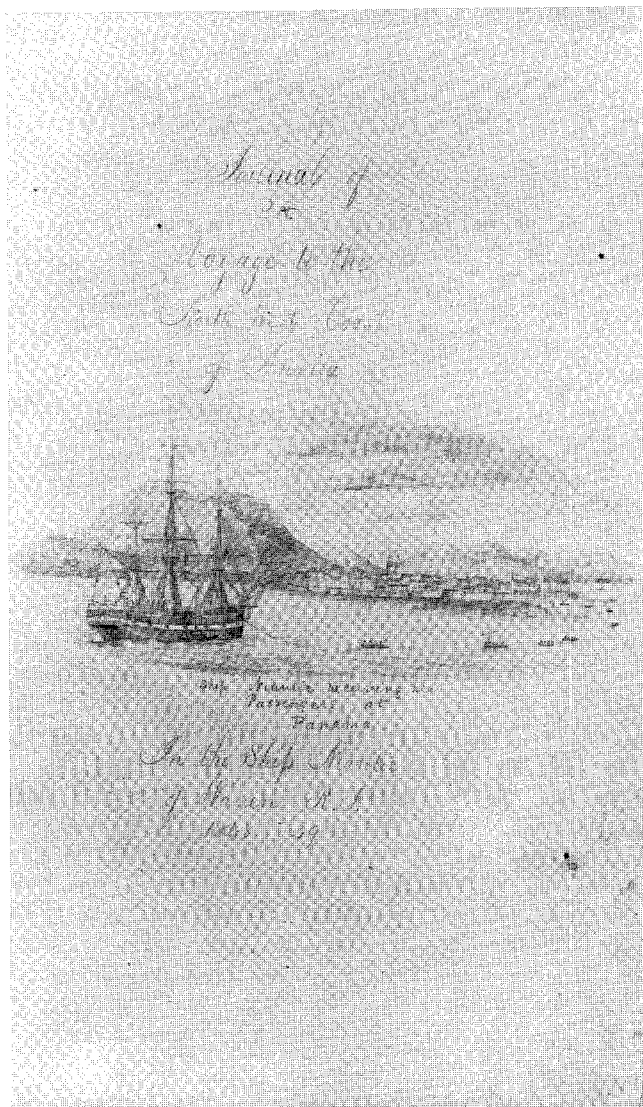 Journal of
a
Voyage to the
North West Coast
of America
Ship Niantic receiving
Passengers at
Panama
In the Ship Niantic
of Warren R. I.